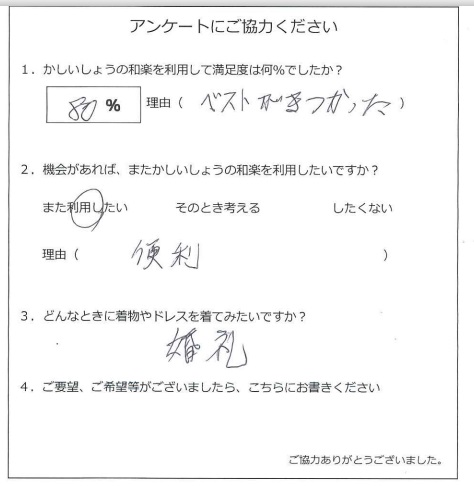 アンケートにご協力ください
1．かしいしょうの和楽を利用して満足度は何%でしたか？
80 % 理由（ベストがきつかった）
2．機会があれば、またかしいしょうの和楽を利用したいですか？
また利用したい そのとき考える したくない
理由（便利）
3．どんなときに着物やドレスを着てみたいですか？
婚礼
4．ご要望、ご希望等がございましたら、こちらにお書きください
ご協力ありがとうございました。